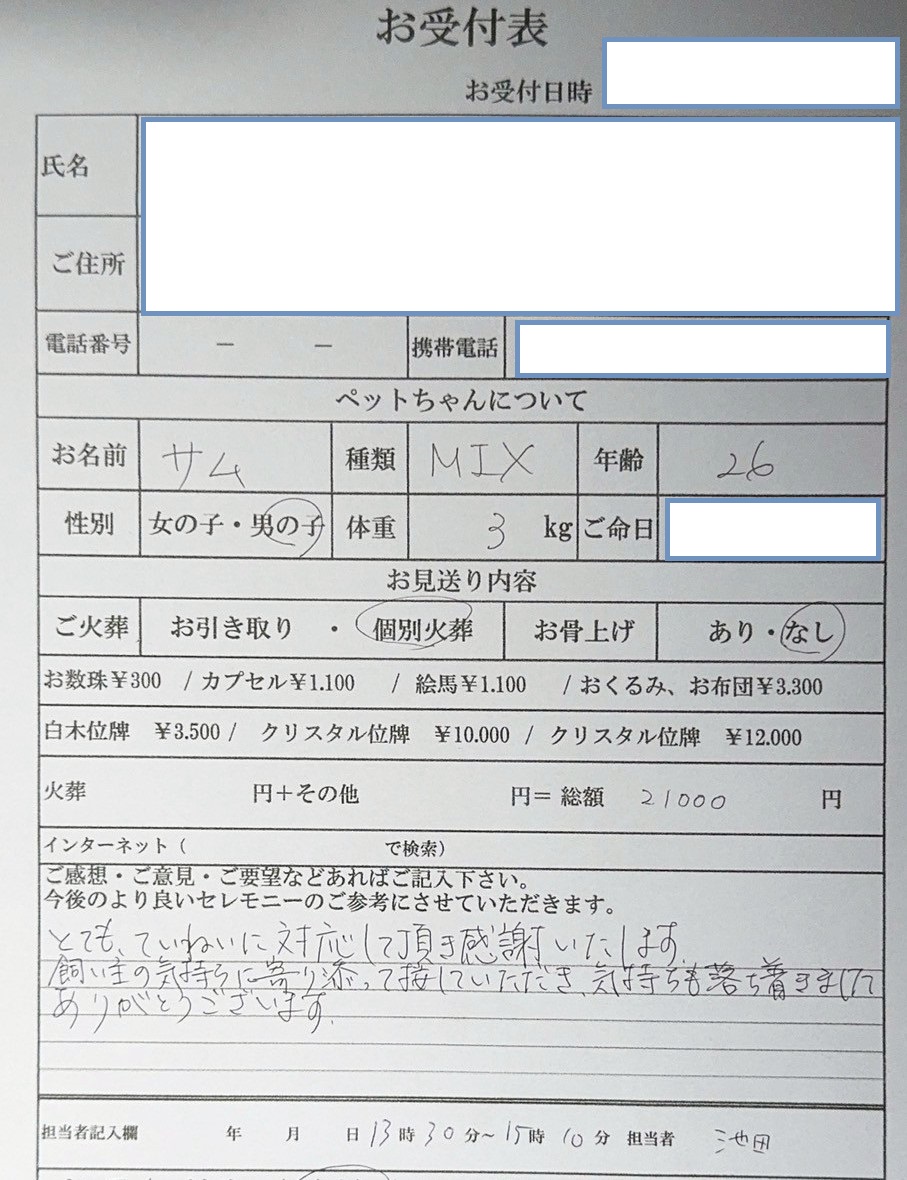 お受付表
お受付日時
氏名
ご住所
電話番号 － － 携帯電話
ペットちゃんについて
お名前 サム 種類 MIX 年齢 26
性別 女の子・男の子 体重 3 kg ご命日
お見送り内容
ご火葬 お引き取り ・ 個別火葬 お骨上げ あり・なし
お数珠¥300 / カプセル¥1.100 / 絵馬¥1.100 / おくるみ、お布団¥3.300
白木位牌 ¥3.500 / クリスタル位牌 ¥10.000 / クリスタル位牌 ¥12.000
火葬 円＋その他 円＝ 総額 21000 円
インターネット（ で検索）
ご感想・ご意見・ご要望などあればご記入下さい。
今後のより良いセレモニーのご参考にさせていただきます。
とても、ていねいに対応して頂き感謝いたします。
飼い主の気持ちに寄り添って接していただき、気持ちも落ち着きまして
ありがとうございます。
担当者記入欄 年 月 日 13時30分～15時10分 担当者 池田